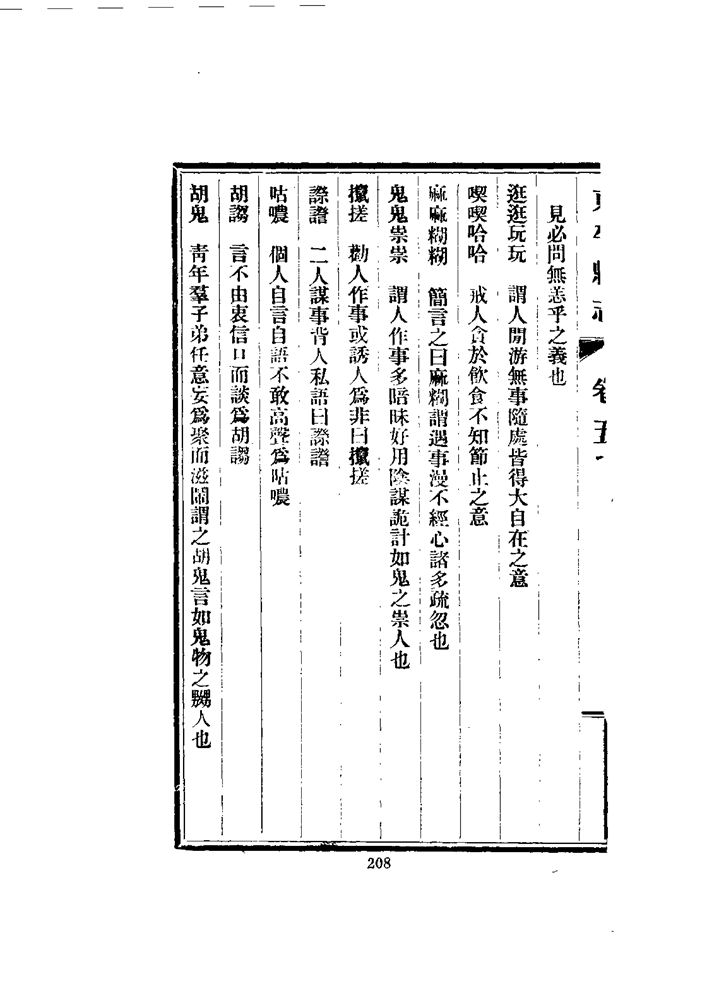 卷五
見必問無恙乎之義也
逛逛玩玩 謂人閒游無事隨處皆得大自在之意
喫喫哈哈 戒人貪於飲食不知節止之意
麻麻糊糊 簡言之曰麻糊謂遇事漫不經心諸多疏忽也
鬼鬼祟祟 謂人作事多暗昧好用陰謀詭計如鬼之祟人也
攛搓 勸人作事或誘人爲非曰攛搓
二人謀事背人私語曰
咕噥 個人自言自語不敢高聲爲咕噥
胡謅 言不由衷信口而談爲胡謅
胡鬼 靑年羣子弟任意妄爲聚而滋鬧謂之胡鬼言如鬼物之嬲人也
208